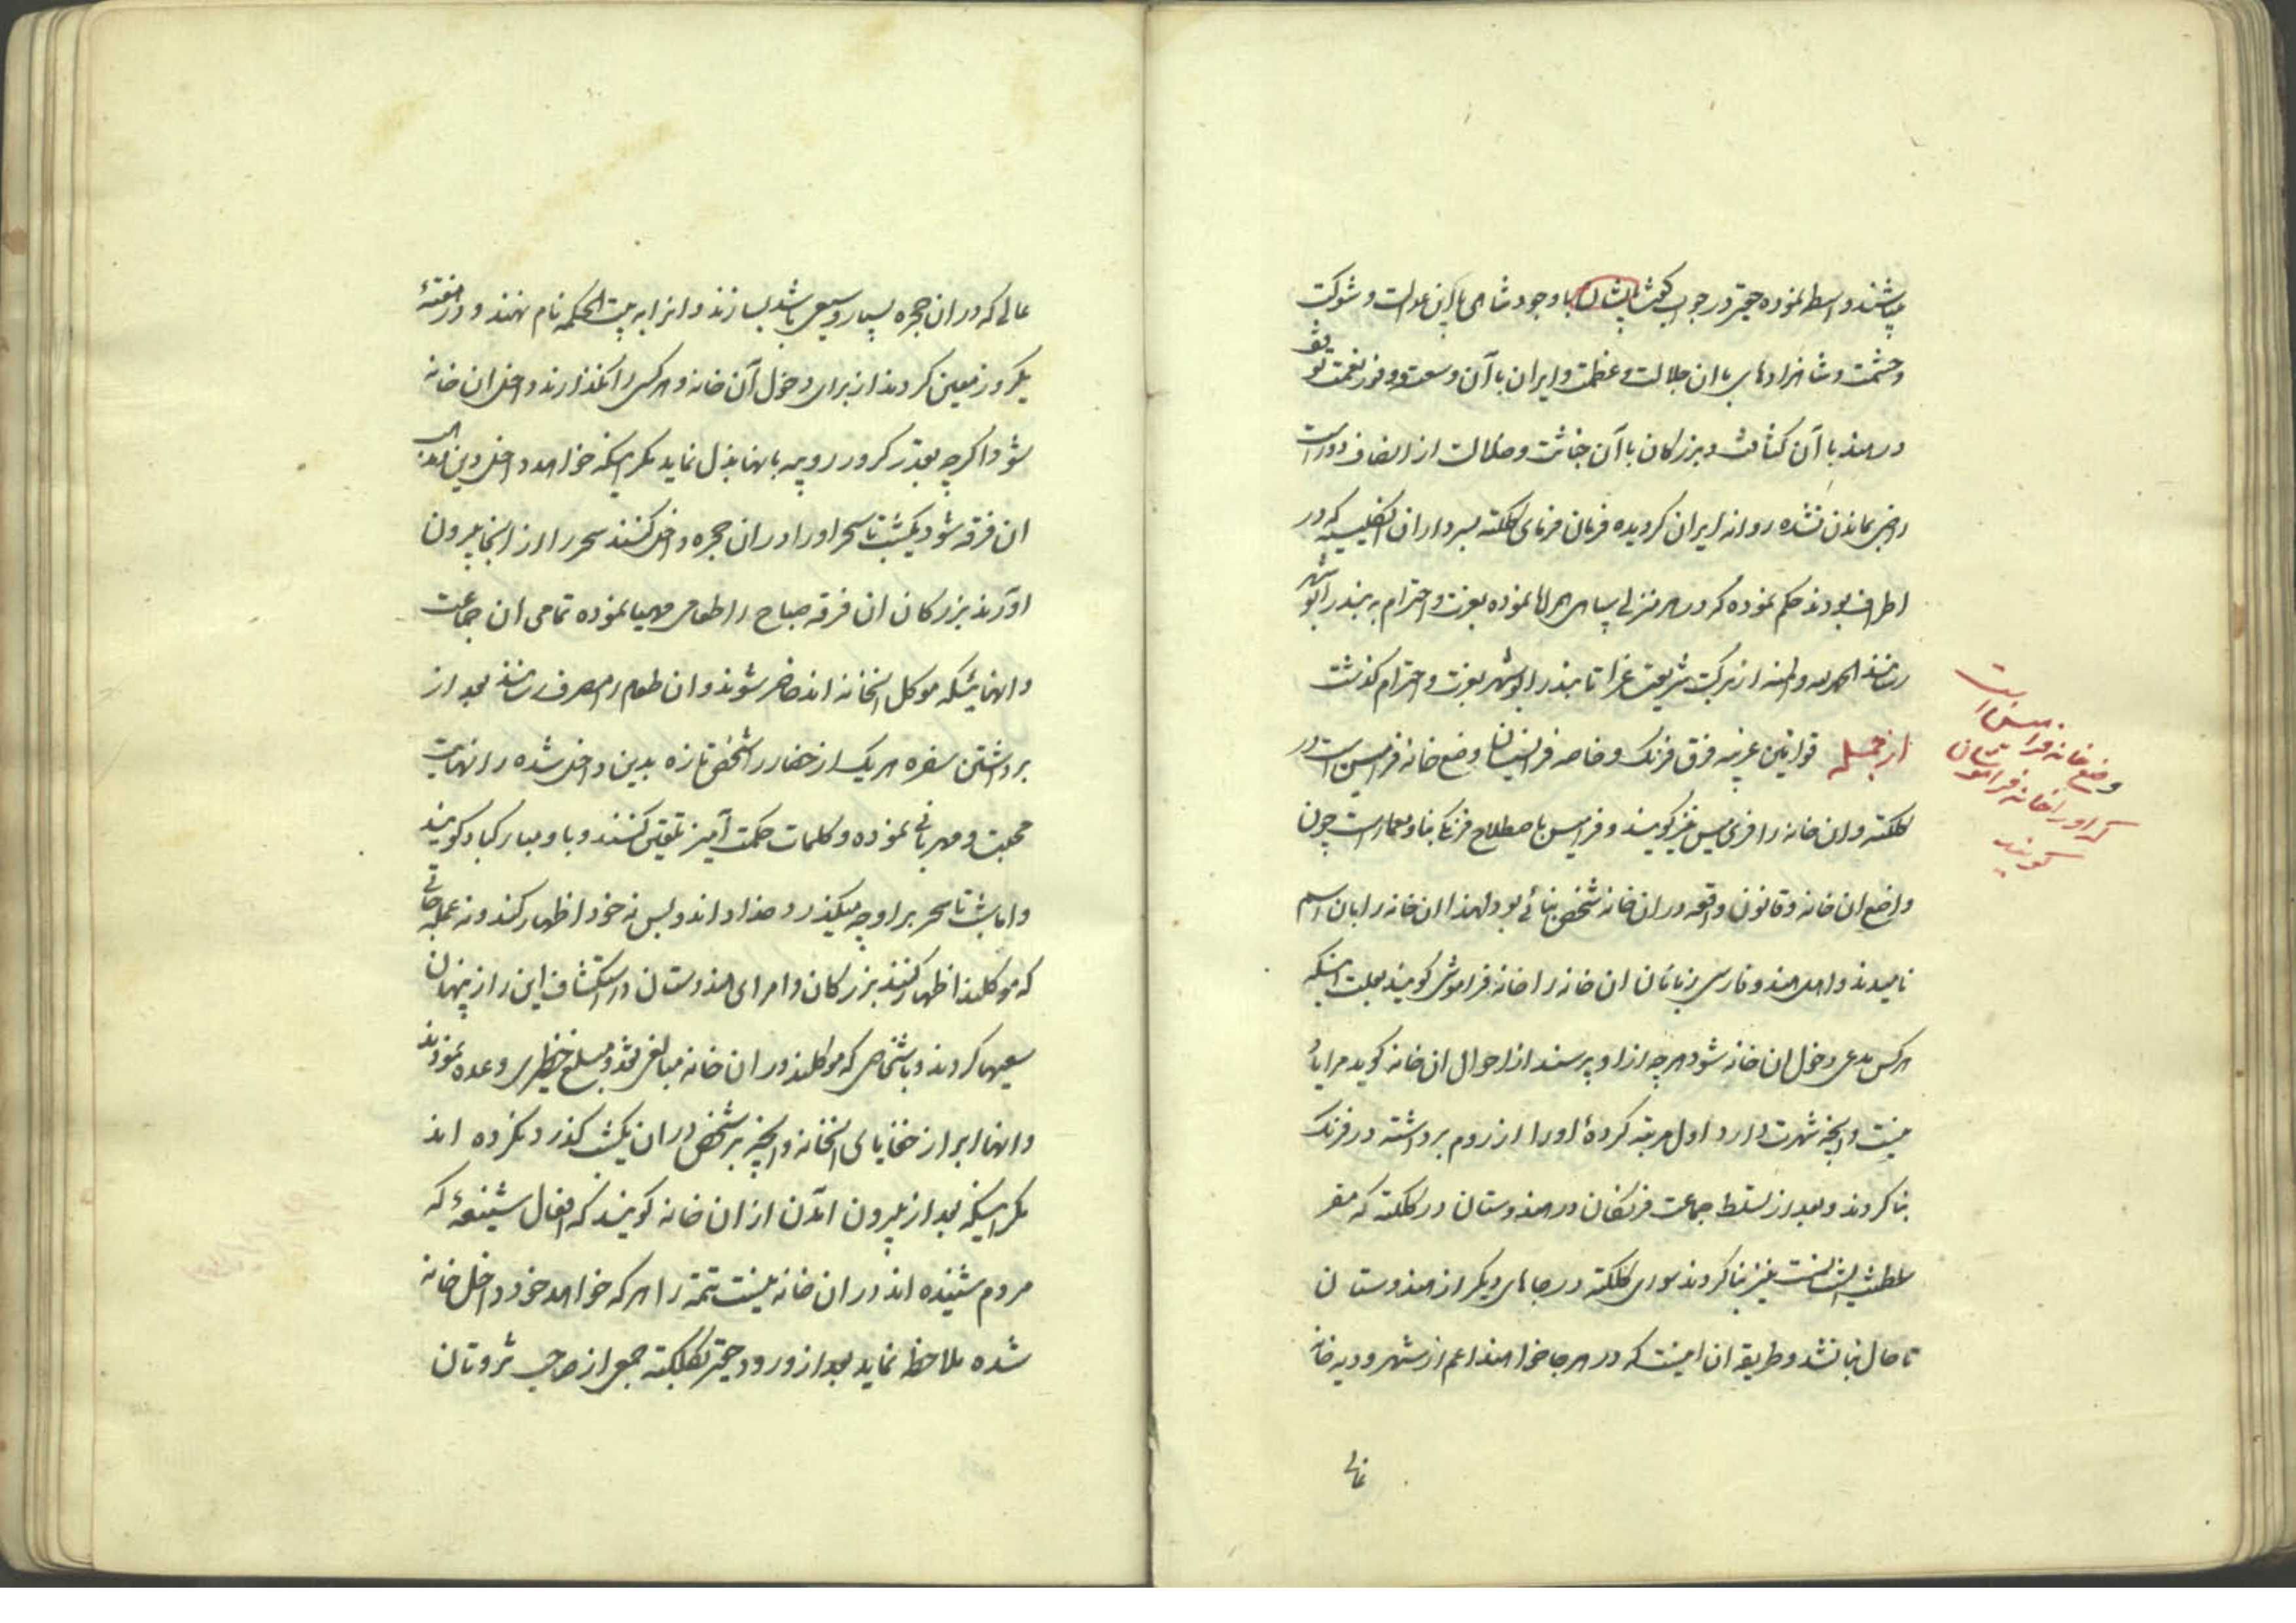 میباشند واسطه نموده حقیر در جواب گفت ایشان با وجود شاهی باین عدالت و شوکت
و حشمت و شاهزادهای باان جلالت و عظمت و ایران با آن وسعت و وفور نعمت توقف
در هند با آن کثافت و بزرکان با آن خباثت و ضلالت از انصاف دور است
راضی بماندن نشده روانه ایران کردیده فرمان فرمای کلکته بسرداران انکلیسیه که در
اطراف بودند حکم نموده که در هر منزلی سپاهی همراه نموده بعزت و احترام به بندر ابوشهر
رسانند الحمد لله و المنه از برکت شریعت غرا تا بندر ابوشهر بعزت و احترام کذشت
از جمله قوانین غریبه فرق فرنک و خاصه فرانسیسان وضع خانه فرامیسن است در
کلکته و ان خانه را فری میسن نیز کویند و فرامیسن باصطلاح فرنک بنا و معمار است چون
واضع ان خانه و قانون واقعه در ان خانه شخص بنائی بود لهذا ان خانه را بان اسم
نامیدند و اهل هند و فارسی زبانان ان خانه را خانه فراموشی کویند بعلت اینکه
هر کس مدعی دخول ان خانه شود هر چه از او پرسند از احوال ان خانه کوید مرا یاد
نیست و انچه شهرت دارد اول مرتبه کرده او را از روم برداشته در فرنک
بنا کردند و بعد از تسلط جماعت فرنکان در هندوستان در کلکته که مقر
سلطنت ایشانست نیز بنا کردند سوای کلکته در جاهای دیکر از هندوستان
تا حال بنا نشد و طریقه ان اینست که در هر جا خواهند اعم از شهر و دیه خانه
عالی
وضع خانه فرامیسن است
که او را خانه فراموشان
کویند
عالی که در ان حجره بسیار وسیعی باشد بسازند و انرا به بیت الحکمه نام نهند و در هفته
یکروز معین کردند از برای دخول آن خانه و هر کس را نکذارند داخل ان خانه
شود اکرچه بقدر کرور روپیه بانها بذل نماید مکر اینکه خواهد داخل دین و مذهب
ان فرقه شود یکشب تا سحر او را در ان حجره داخل کنند سحر او را از انجا بیرون
اورند بزرکان ان فرقه صباح را طعامی مهیا نموده تمامی ان جماعت
و انهائیکه موکل انخانه اند حاضر شوند و ان طعام را بمصرف رسانند بعد از
برداشتن سفره هر یک از حضار شخص تازه بدین داخل شده را نهایت
محبت و مهربانی نموده و کلمات حکمت آمیز تلقین کنند و باو مبارکباد کویند
و اما شب تا سحر بر او چه میکذرد خدا داند و بس نه خود اظهار کند و نه عمله جاتی
که موکلند اظهار کنند بزرکان و امرای هندوستان در استکشاف این راز پنهان
سعیها کردند و باشخاصی که موکلند در ان خانه مبالغی نقد و مبلغ خطیری وعده نمودند
و انها ابراز خفایای انخانه و انچه بر شخص در ان یکشب کذرد نکرده اند
مکر اینکه بعد از بیرون آمدن از ان خانه کویند که افعال شنیعه که
مردم شنیده اند در ان خانه نیست تتمه را هر که خواهد خود داخل خانه
شده ملاحظه نماید بعد از ورود حقیر بکلکته جمعی از صاحب ثروتان